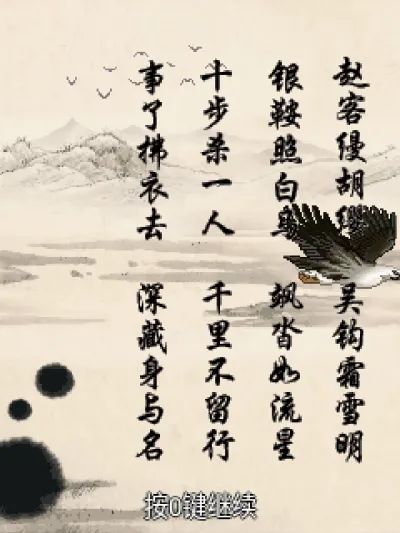 赵客缦胡缨
吴钩霜雪明
银鞍照白马
飒沓如流星
十步杀一人
千里不留行
事了拂衣去
深藏身与名
按0键继续